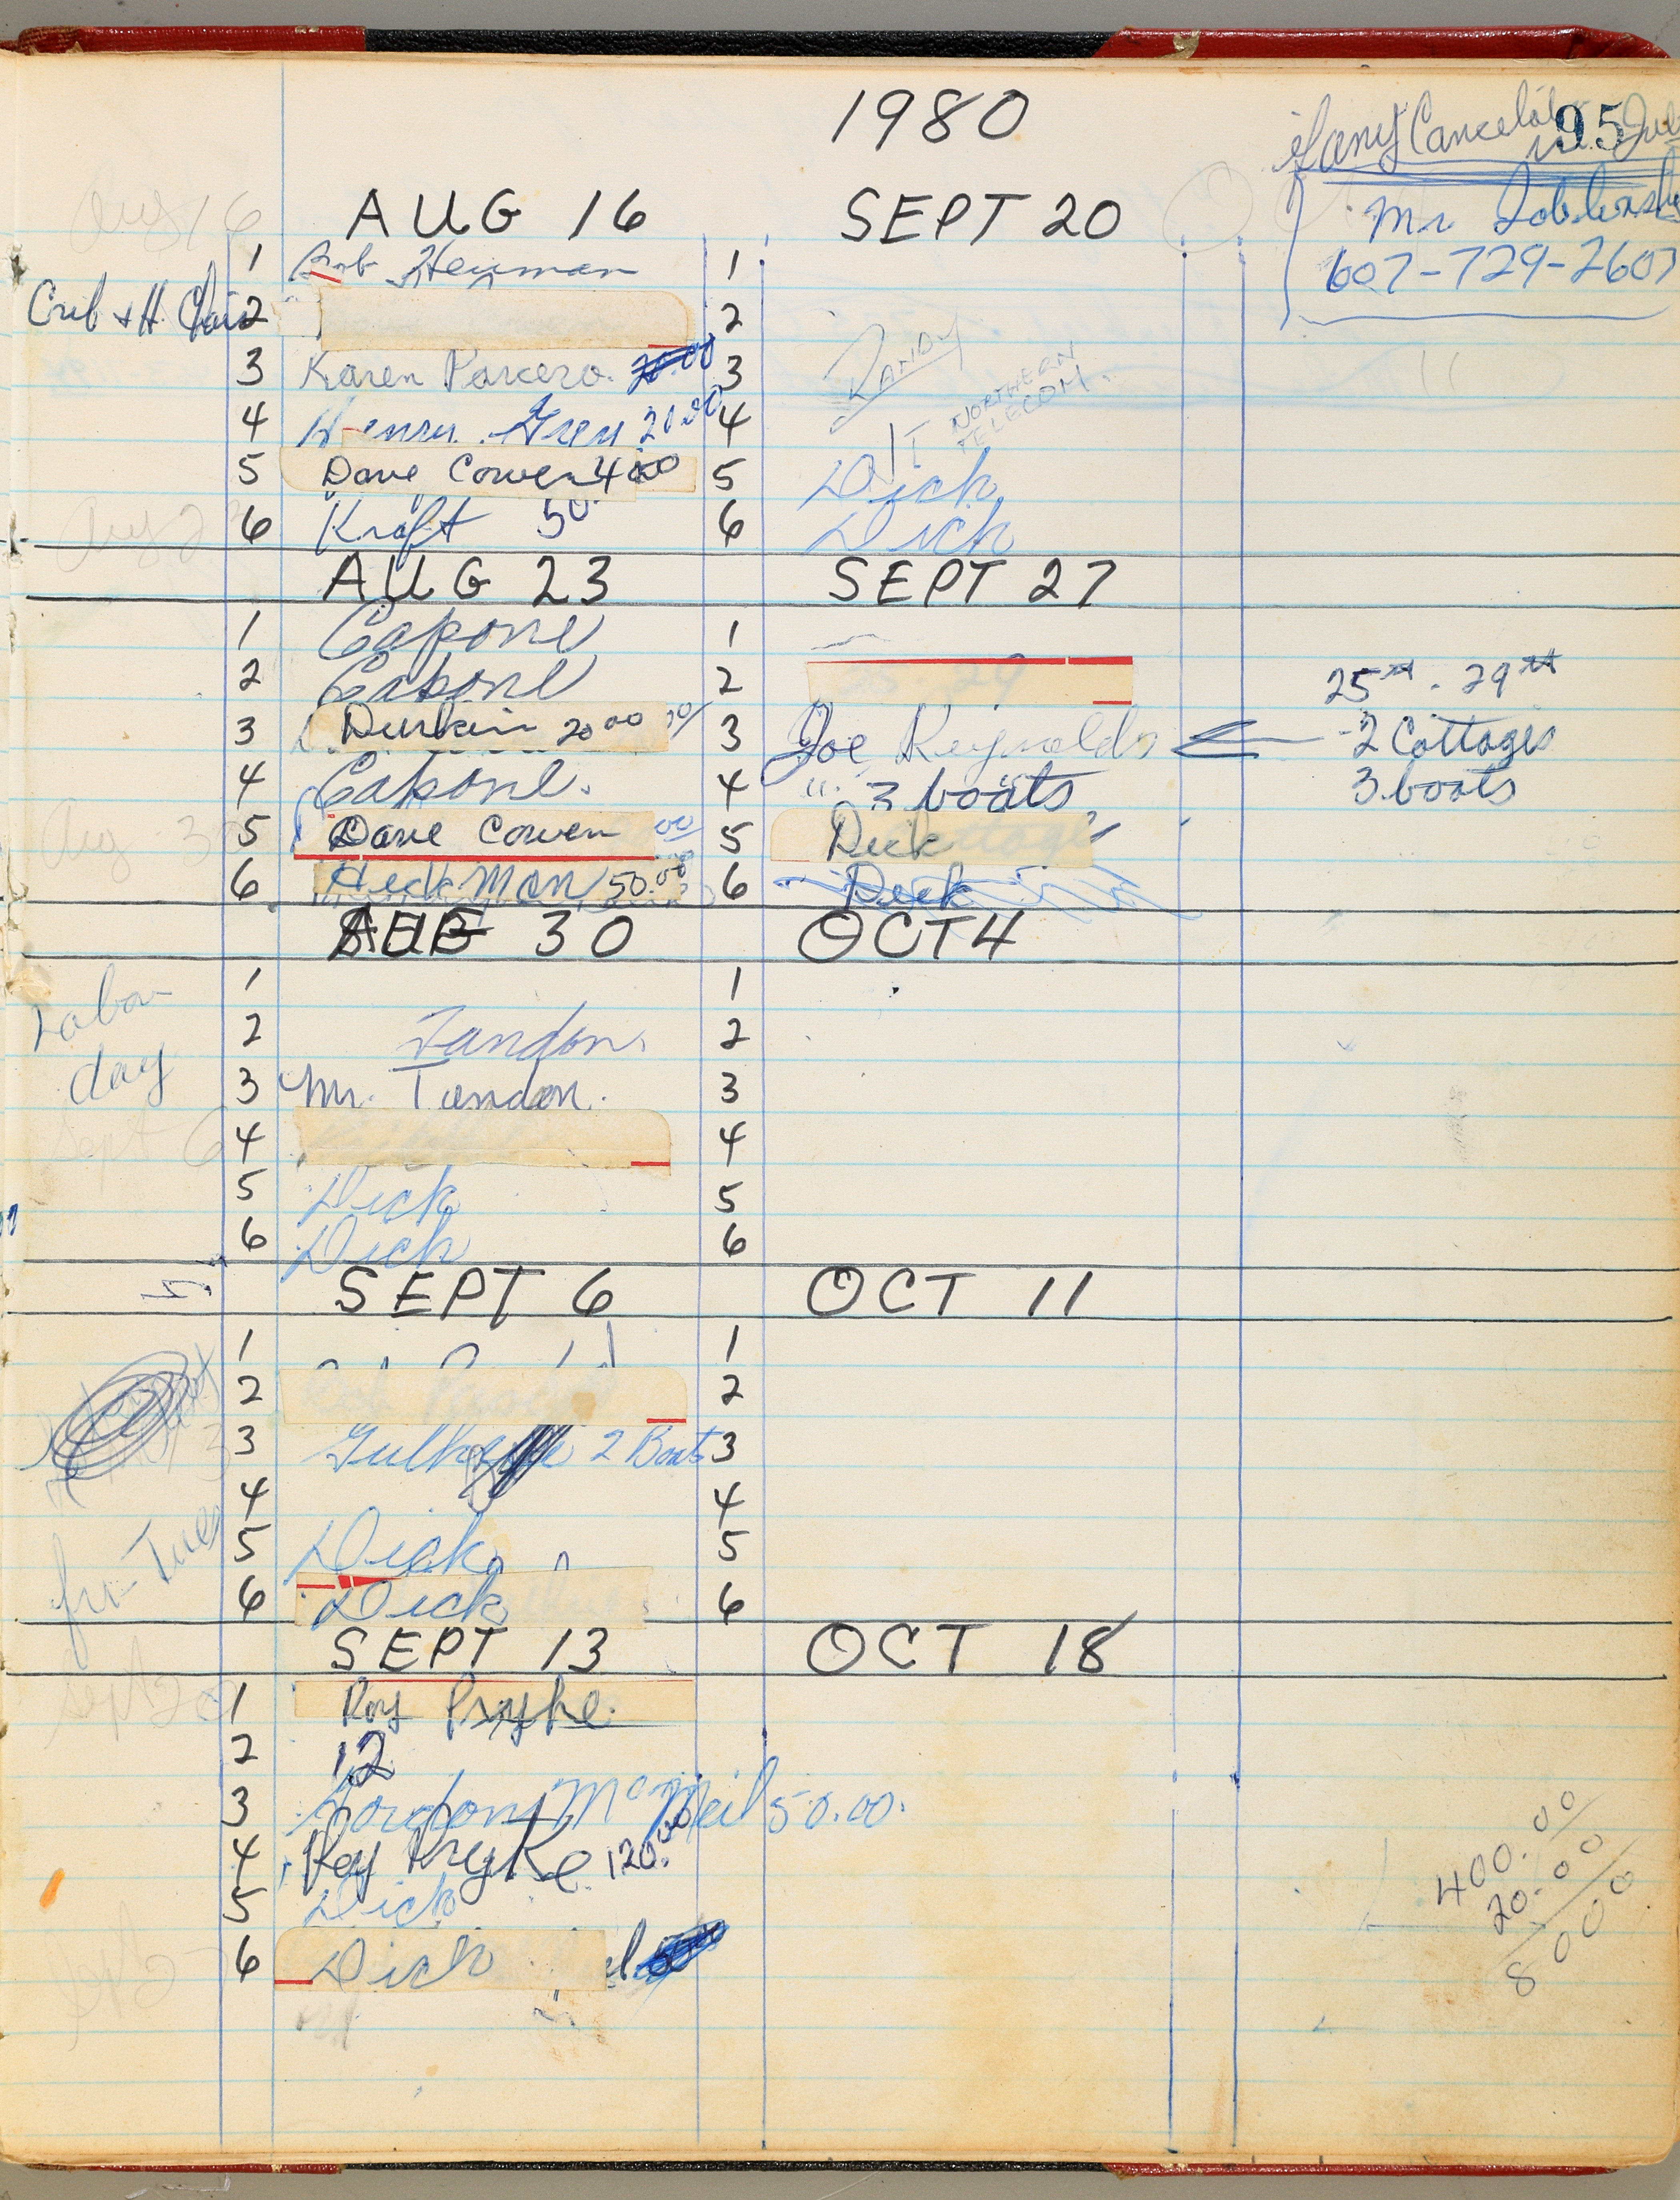 1980
95
if any Cancelat in July
Mr
607-729-2607
Aug 16
AUG 16
SEPT 20
Crib & H. Chair
1 Bob Heyman
2
3 Karen Parcero. 20.00
4 Henry Grey 20.00
5 Dave Cowen 4
6 Kraft 50
1
2
3
4
5 Dick
6 Dick
RANDY
NORTHERN
TELECOM.
Aug 23
AUG 23
SEPT 27
1 Capone
2 Capone
3 Durkin 20 00
4 Capone.
5 Dave Cowen 00
6 HeckMan 50.00
1
2 25 - 29
3 Joe Reynolds
4 " 3 boats
5 Dick
6 Dick
25th - 29th
2 Cottages
3 boats
Aug 30
AUG 30
OCT 4
Labor
day
1
2 Tandon.
3 Mr. Tandon.
4
5 Dick
6 Dick
1
2
3
4
5
6
Sept 6
SEPT 6
OCT 11
1
2
3 2 Boats
4
5 Dick
6 Dick
1
2
3
4
5
6
fri - Tues
SEPT 13
OCT 18
Sept 20
1 Roy Pryke.
2 12
3 Gordon McNeil 50.00.
4 Roy Pryke 120.00
5 Dick
6 Dick
400.00
20.00
8000